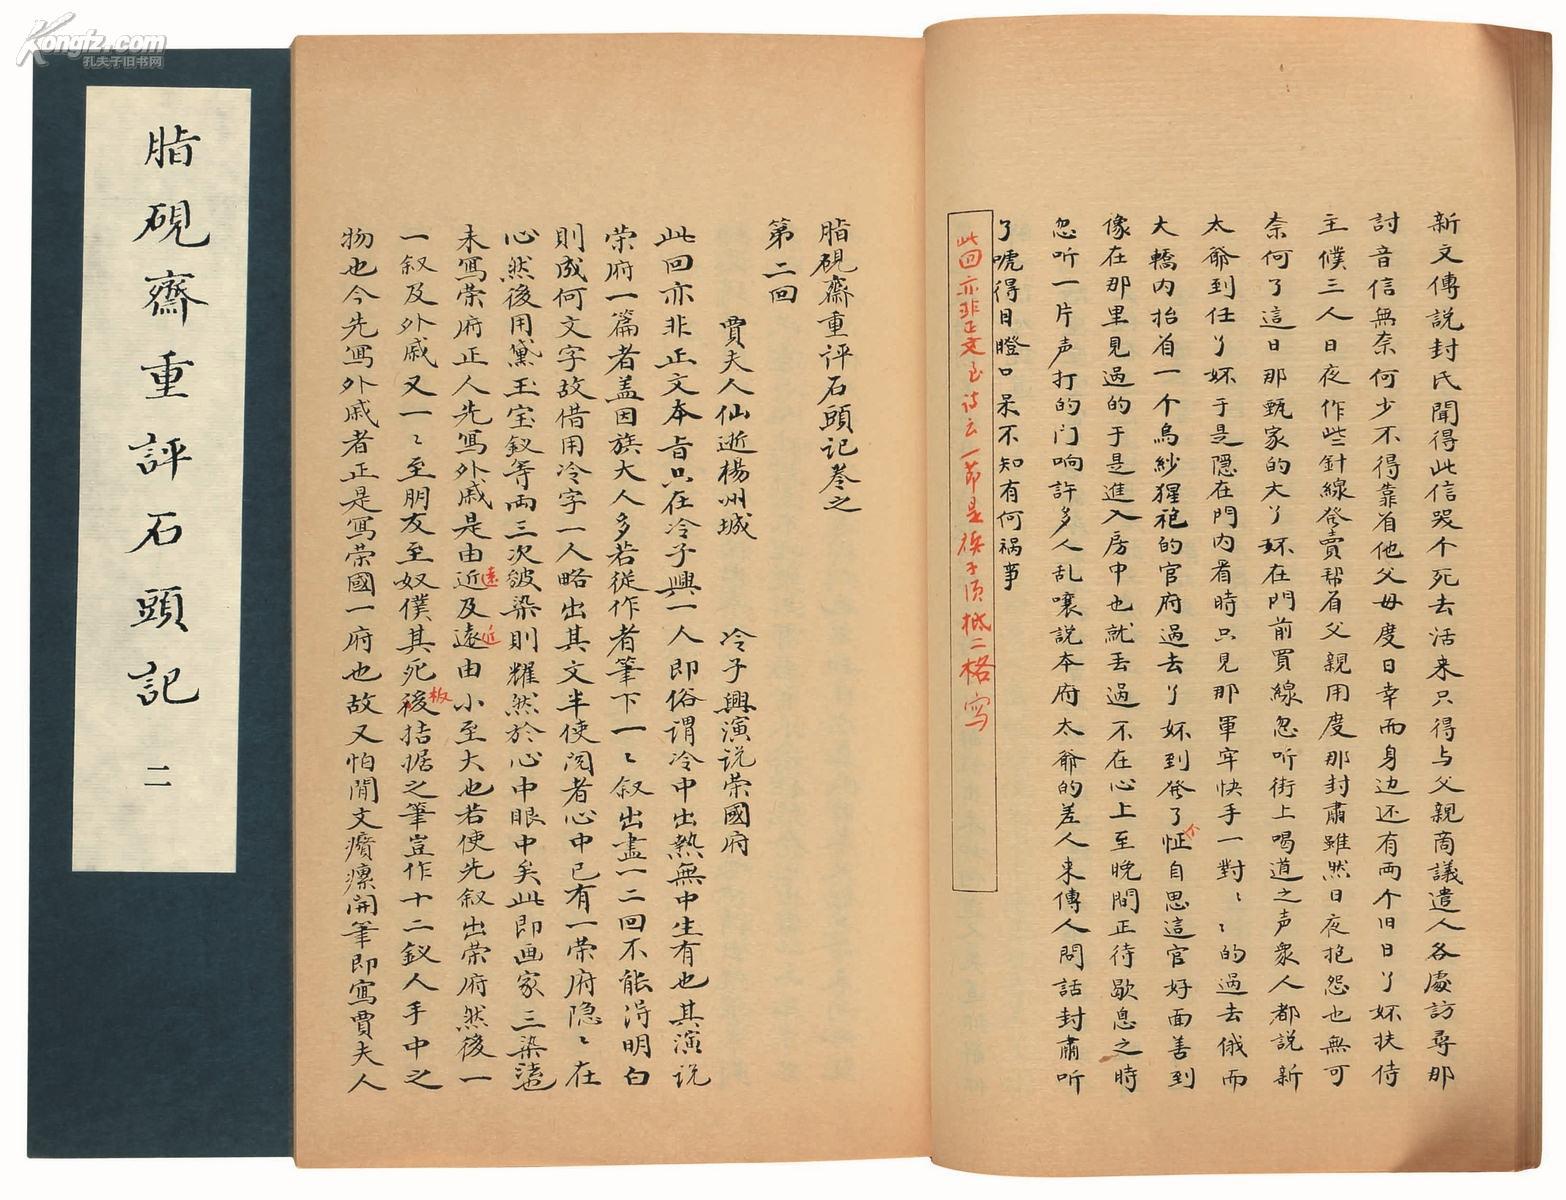 Kongfz.com
孔夫子旧书网
脂硯齋重評石頭記 二
新文傳說封氏聞得此信哭个死去活来只得与父親商議遣人各處訪尋那
討音信無奈何少不得靠着他父母度日幸而身边还有两个旧日丫嬛扶侍
主僕三人日夜作些針線發賣帮着父親用度那封肅雖然日夜抱怨也無可
奈何了這日那甄家的大丫嬛在門前買線忽听街上喝道之声衆人都說新
太爺到任丫嬛于是隱在門内看時只見那軍牢快手一對〻的過去俄而
大轎内抬着一个烏紗猩袍的官府過去丫嬛到發了怔自思這官好面善到
个
像在那里見過的于是進入房中也就丢過不在心上至晚間正待歇息之時
忽听一片声打的门响許多人乱嚷説本府太爺的差人来傳人問話封肅听
了唬得目瞪口呆不知有何祸事
此回亦非正文至诗云一節是楔子須低二格寫
脂硯齋重評石頭記卷之
第二回
賈夫人仙逝楊州城 冷子興演说荣國府
此回亦非正文本旨只在冷子興一人即俗谓冷中出熱無中生有也其演说
荣府一篇者盖因族大人多若從作者筆下一〻叙出盡一二回不能得明白
則成何文字故借用冷字一人略出其文半使阅者心中已有一荣府隐〻在
心然後用黛玉宝釵等両三次皴染則耀然於心中眼中矣此即画家三染法
未寫荣府正人先寫外戚是由近及遠由小至大也若使先叙出荣府然後一
遠
近
一叙及外戚又一〻至朋友至奴僕其死後拮据之筆豈作十二釵人手中之
板
物也今先寫外戚者正是寫荣國一府也故又怕閒文癀瘰開筆即寫賈夫人